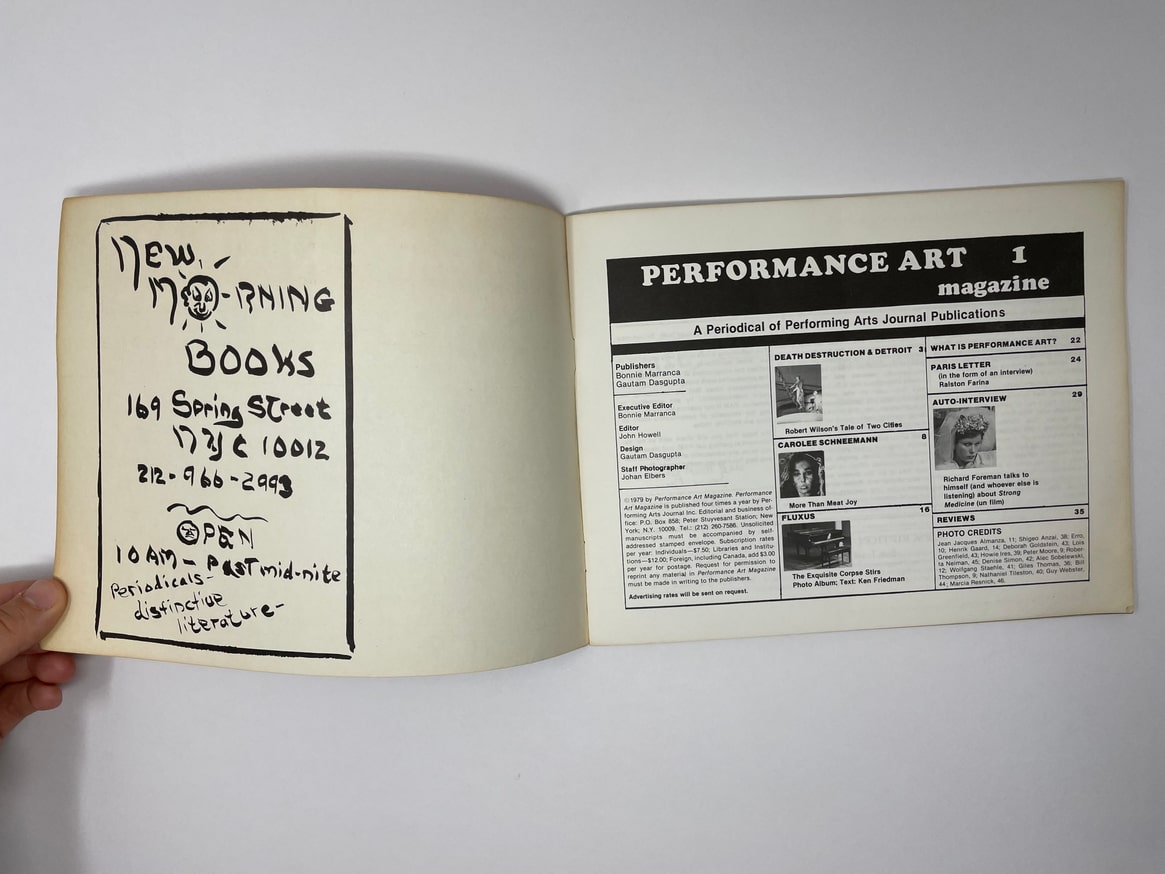 NEW
MORNING
BOOKS
169 Spring Street
NYC 10012
212-966-2993
OPEN
10 AM - PAST mid-nite
Periodicals-
distinctive
literature-
PERFORMANCE ART 1
magazine
A Periodical of Performing Arts Journal Publications
Publishers
Bonnie Marranca
Gautam Dasgupta
Executive Editor
Bonnie Marranca
Editor
John Howell
Design
Gautam Dasgupta
Staff Photographer
Johan Elbers
©1979 by Performance Art Magazine. Performance
Art Magazine is published four times a year by Per-
forming Arts Journal Inc. Editorial and business of-
fice: P.O. Box 858; Peter Stuyvesant Station; New
York; N.Y. 10009. Tel.: (212) 260-7586. Unsolicited
manuscripts must be accompanied by self-
addressed stamped envelope. Subscription rates
per year: Individuals—$7.50; Libraries and Institu-
tions—$12.00; Foreign, including Canada, add $3.00
per year for postage. Request for permission to
reprint any material in Performance Art Magazine
must be made in writing to the publishers.
Advertising rates will be sent on request.
DEATH DESTRUCTION & DETROIT 3
Robert Wilson's Tale of Two Cities
CAROLEE SCHNEEMANN 8
More Than Meat Joy
FLUXUS 16
The Exquisite Corpse Stirs
Photo Album; Text: Ken Friedman
WHAT IS PERFORMANCE ART? 22
PARIS LETTER 24
(in the form of an interview)
Ralston Farina
AUTO-INTERVIEW 29
Richard Foreman talks to
himself (and whoever else is
listening) about Strong
Medicine (un film)
REVIEWS 35
PHOTO CREDITS
Jean Jacques Almanza, 11; Shigeo Anzai, 38; Erro,
10; Henrik Gaard, 14; Deborah Goldstein, 43; Lois
Greenfield, 43; Howie Ires, 39; Peter Moore, 9; Rober-
ta Neiman, 45; Denise Simon, 42; Alec Sobolewski,
12; Wolfgang Staehle, 41; Gilles Thomas, 36; Bill
Thompson, 9; Nathaniel Tileston, 40; Guy Webster,
44; Marcia Resnick, 46.